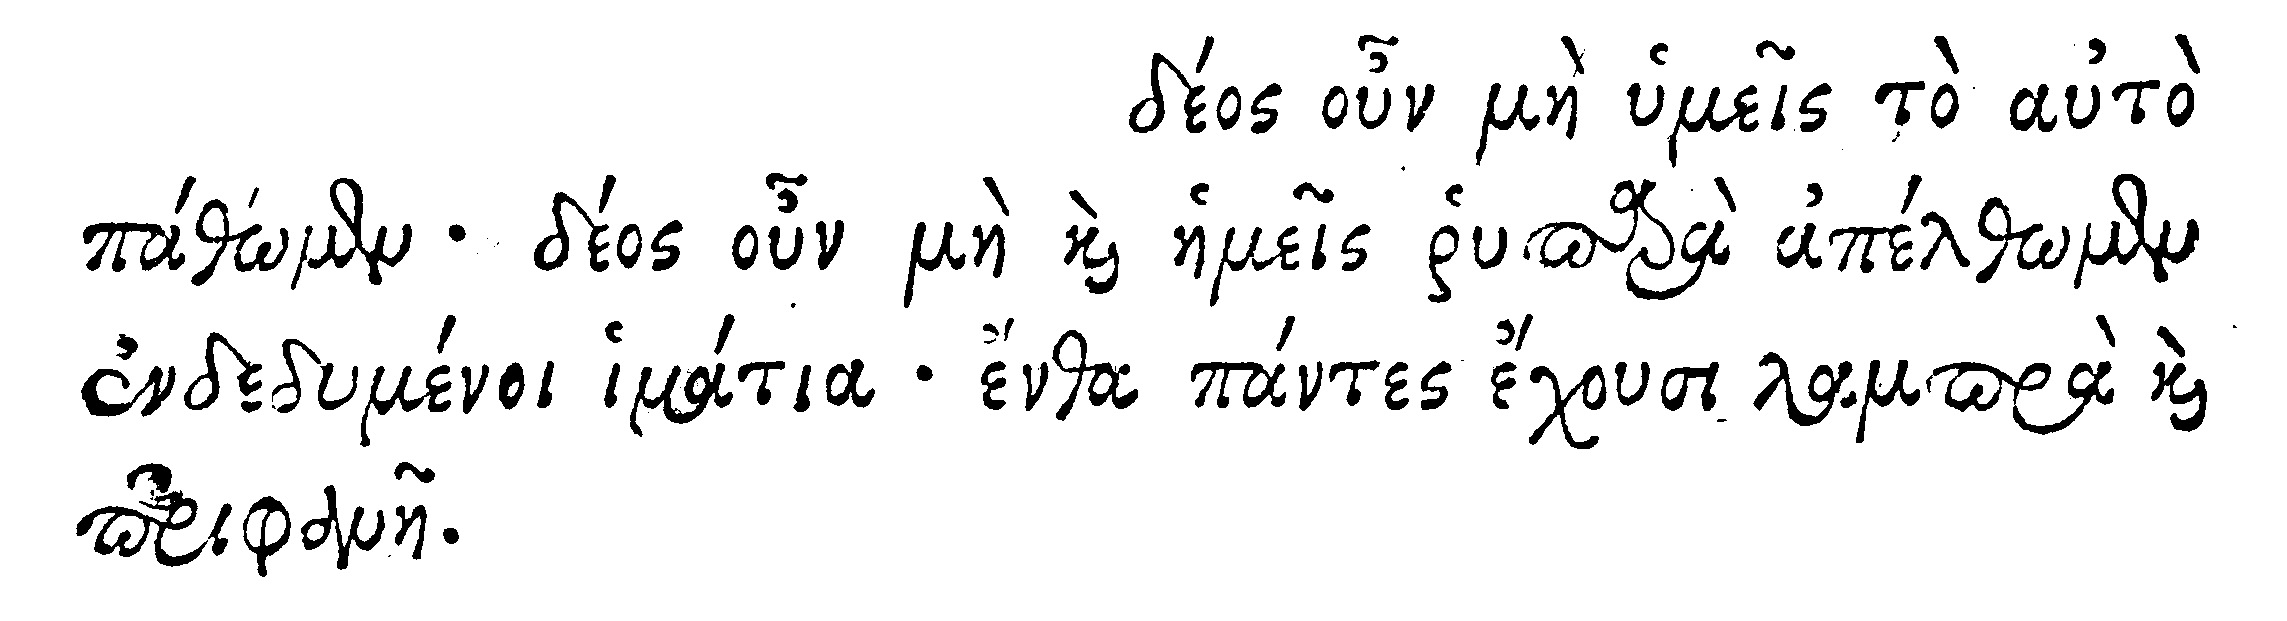 δέος οὖν μὴ ὑμεῖς τὸ αὐτὸ
πάθωμεν · δέος οὖν μὴ ϗ̀ ἡμεῖς ῥυπαρὰ ἀπέλθωμεν
ἐνδεδυμένοι ἱμάτια · ἔνθα πάντες ἔχουσι λαμπρὰ ϗ̀
περιφανῆ.